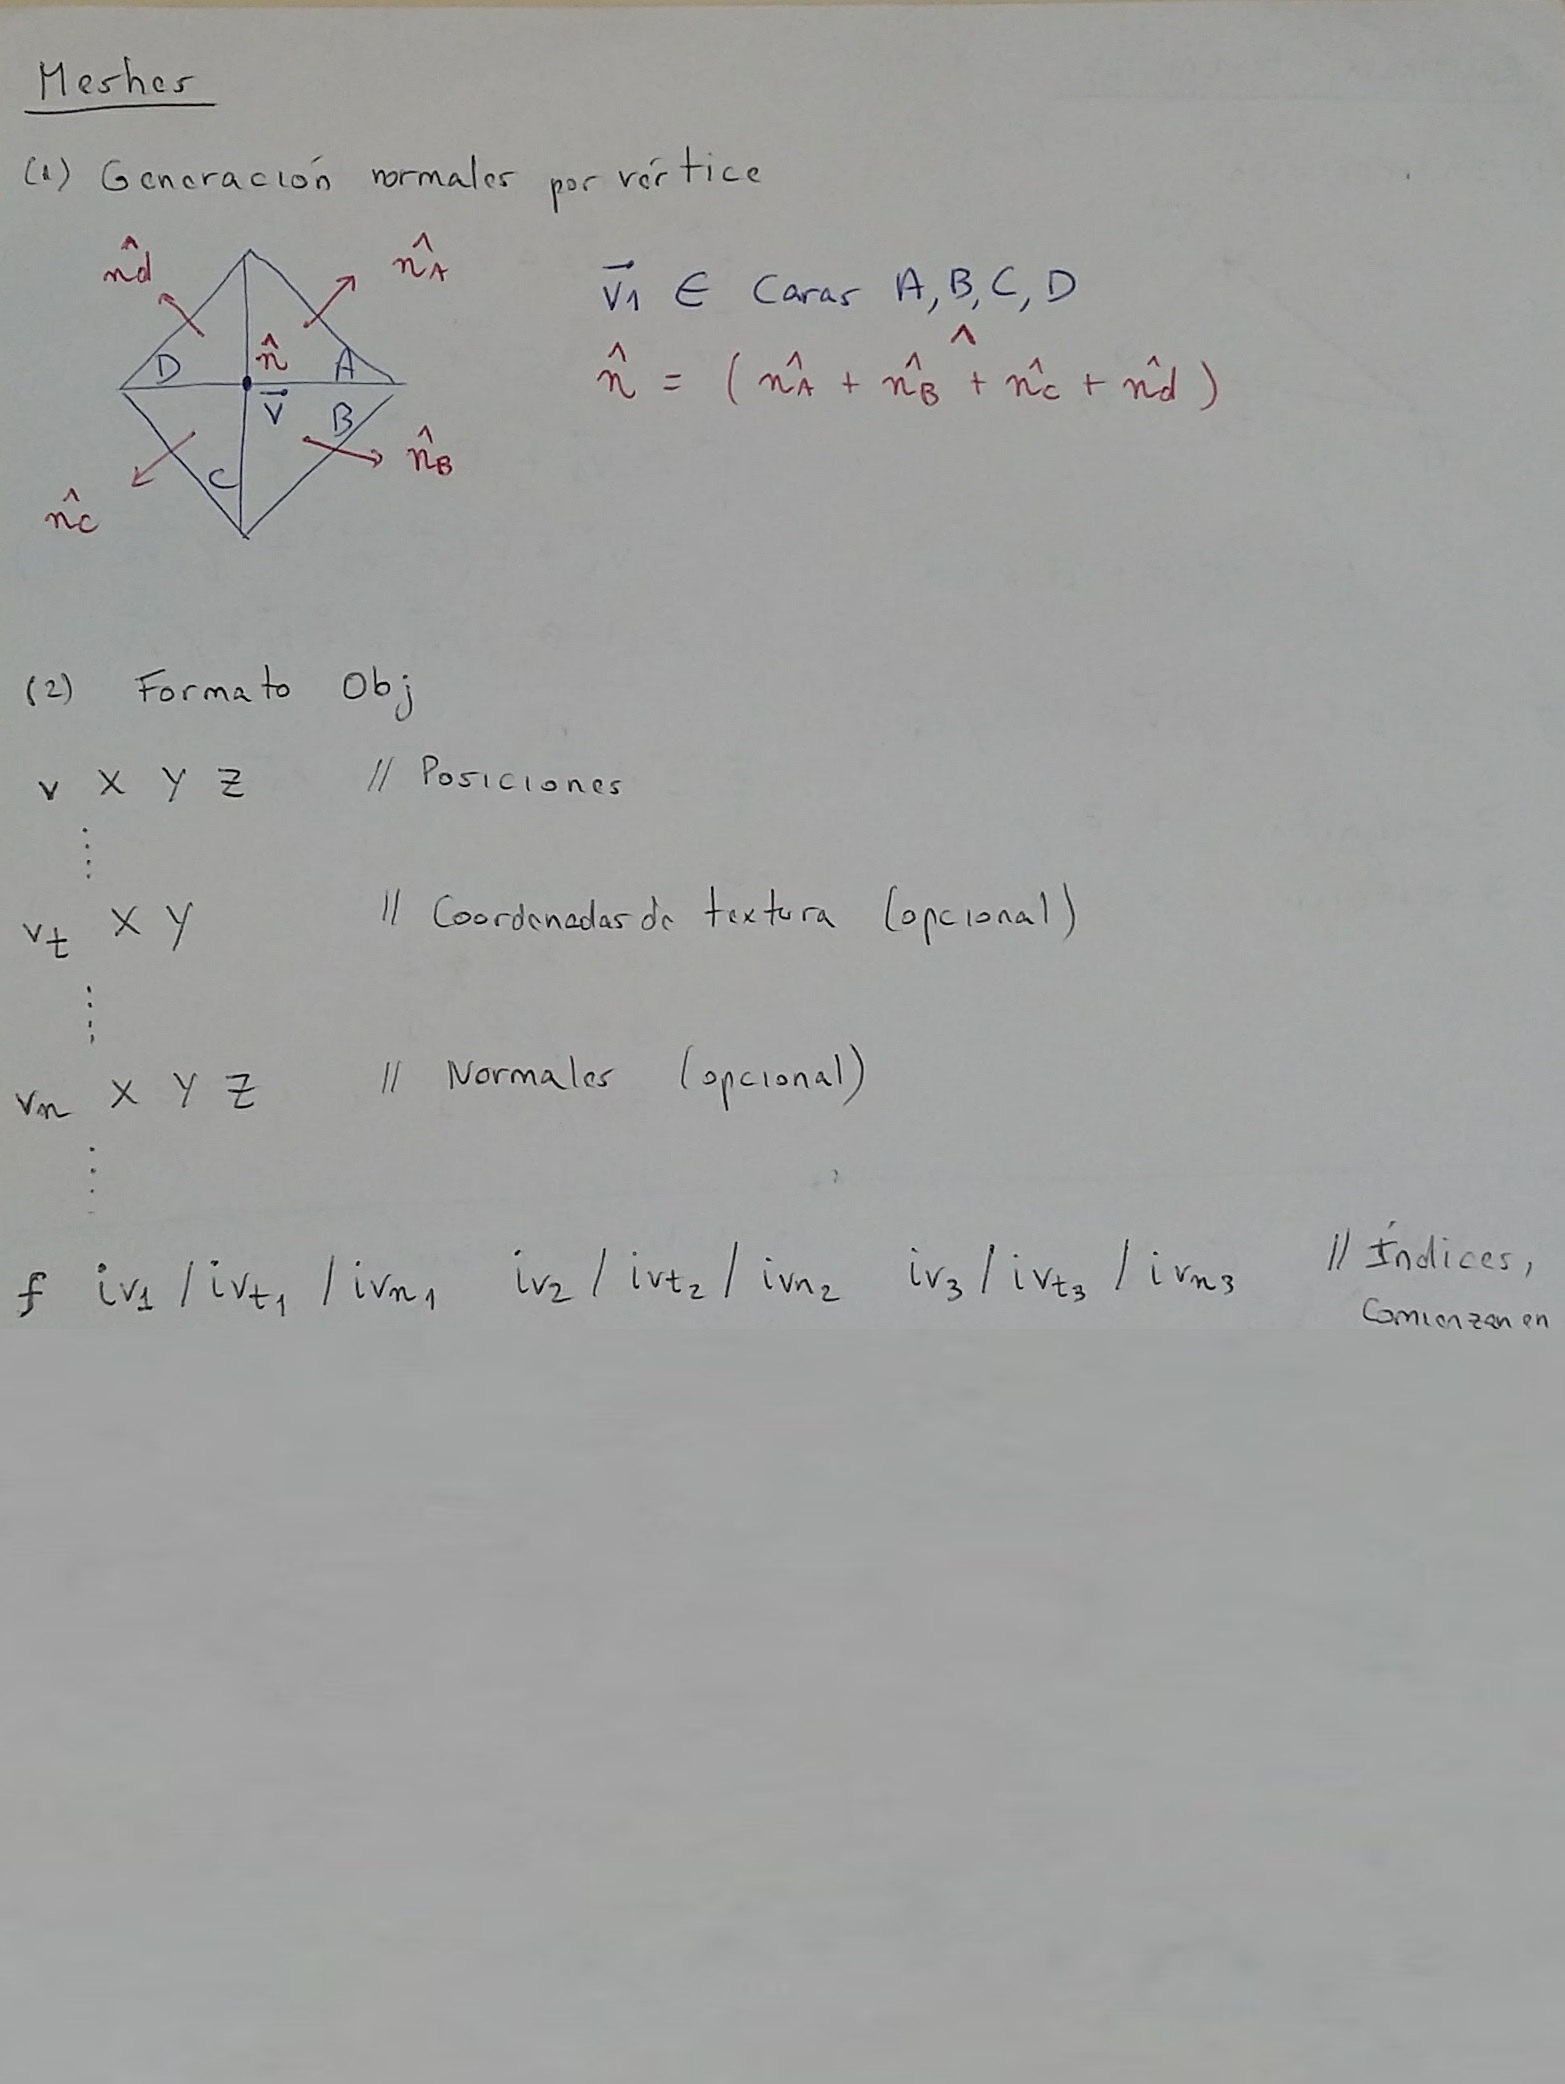 Meshes
(1) Generación normales por vértice
n̂d n̂A
D n̂ A
v⃗ B
C n̂B
n̂C
v⃗1 ∈ Caras A, B, C, D
^
n̂ = ( n̂A + n̂B + n̂C + n̂d )
(2) Formato Obj
v X Y Z // Posiciones
⋮
vt X Y // Coordenadas de textura (opcional)
⋮
vn X Y Z // Normales (opcional)
⋮
f iv1 / ivt1 / ivn1 iv2 / ivt2 / ivn2 iv3 / ivt3 / ivn3 // Índices,
Comienzan en